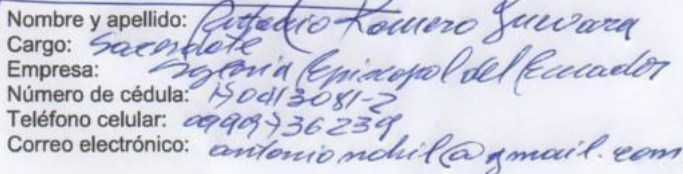 Nombre y apellido: Antonio Romero Guevara
Cargo: Sacerdote
Empresa: Iglesia Episcopal del Ecuador
Número de cédula: 170413081-2
Teléfono celular: 0999736239
Correo electrónico: @gmail.com